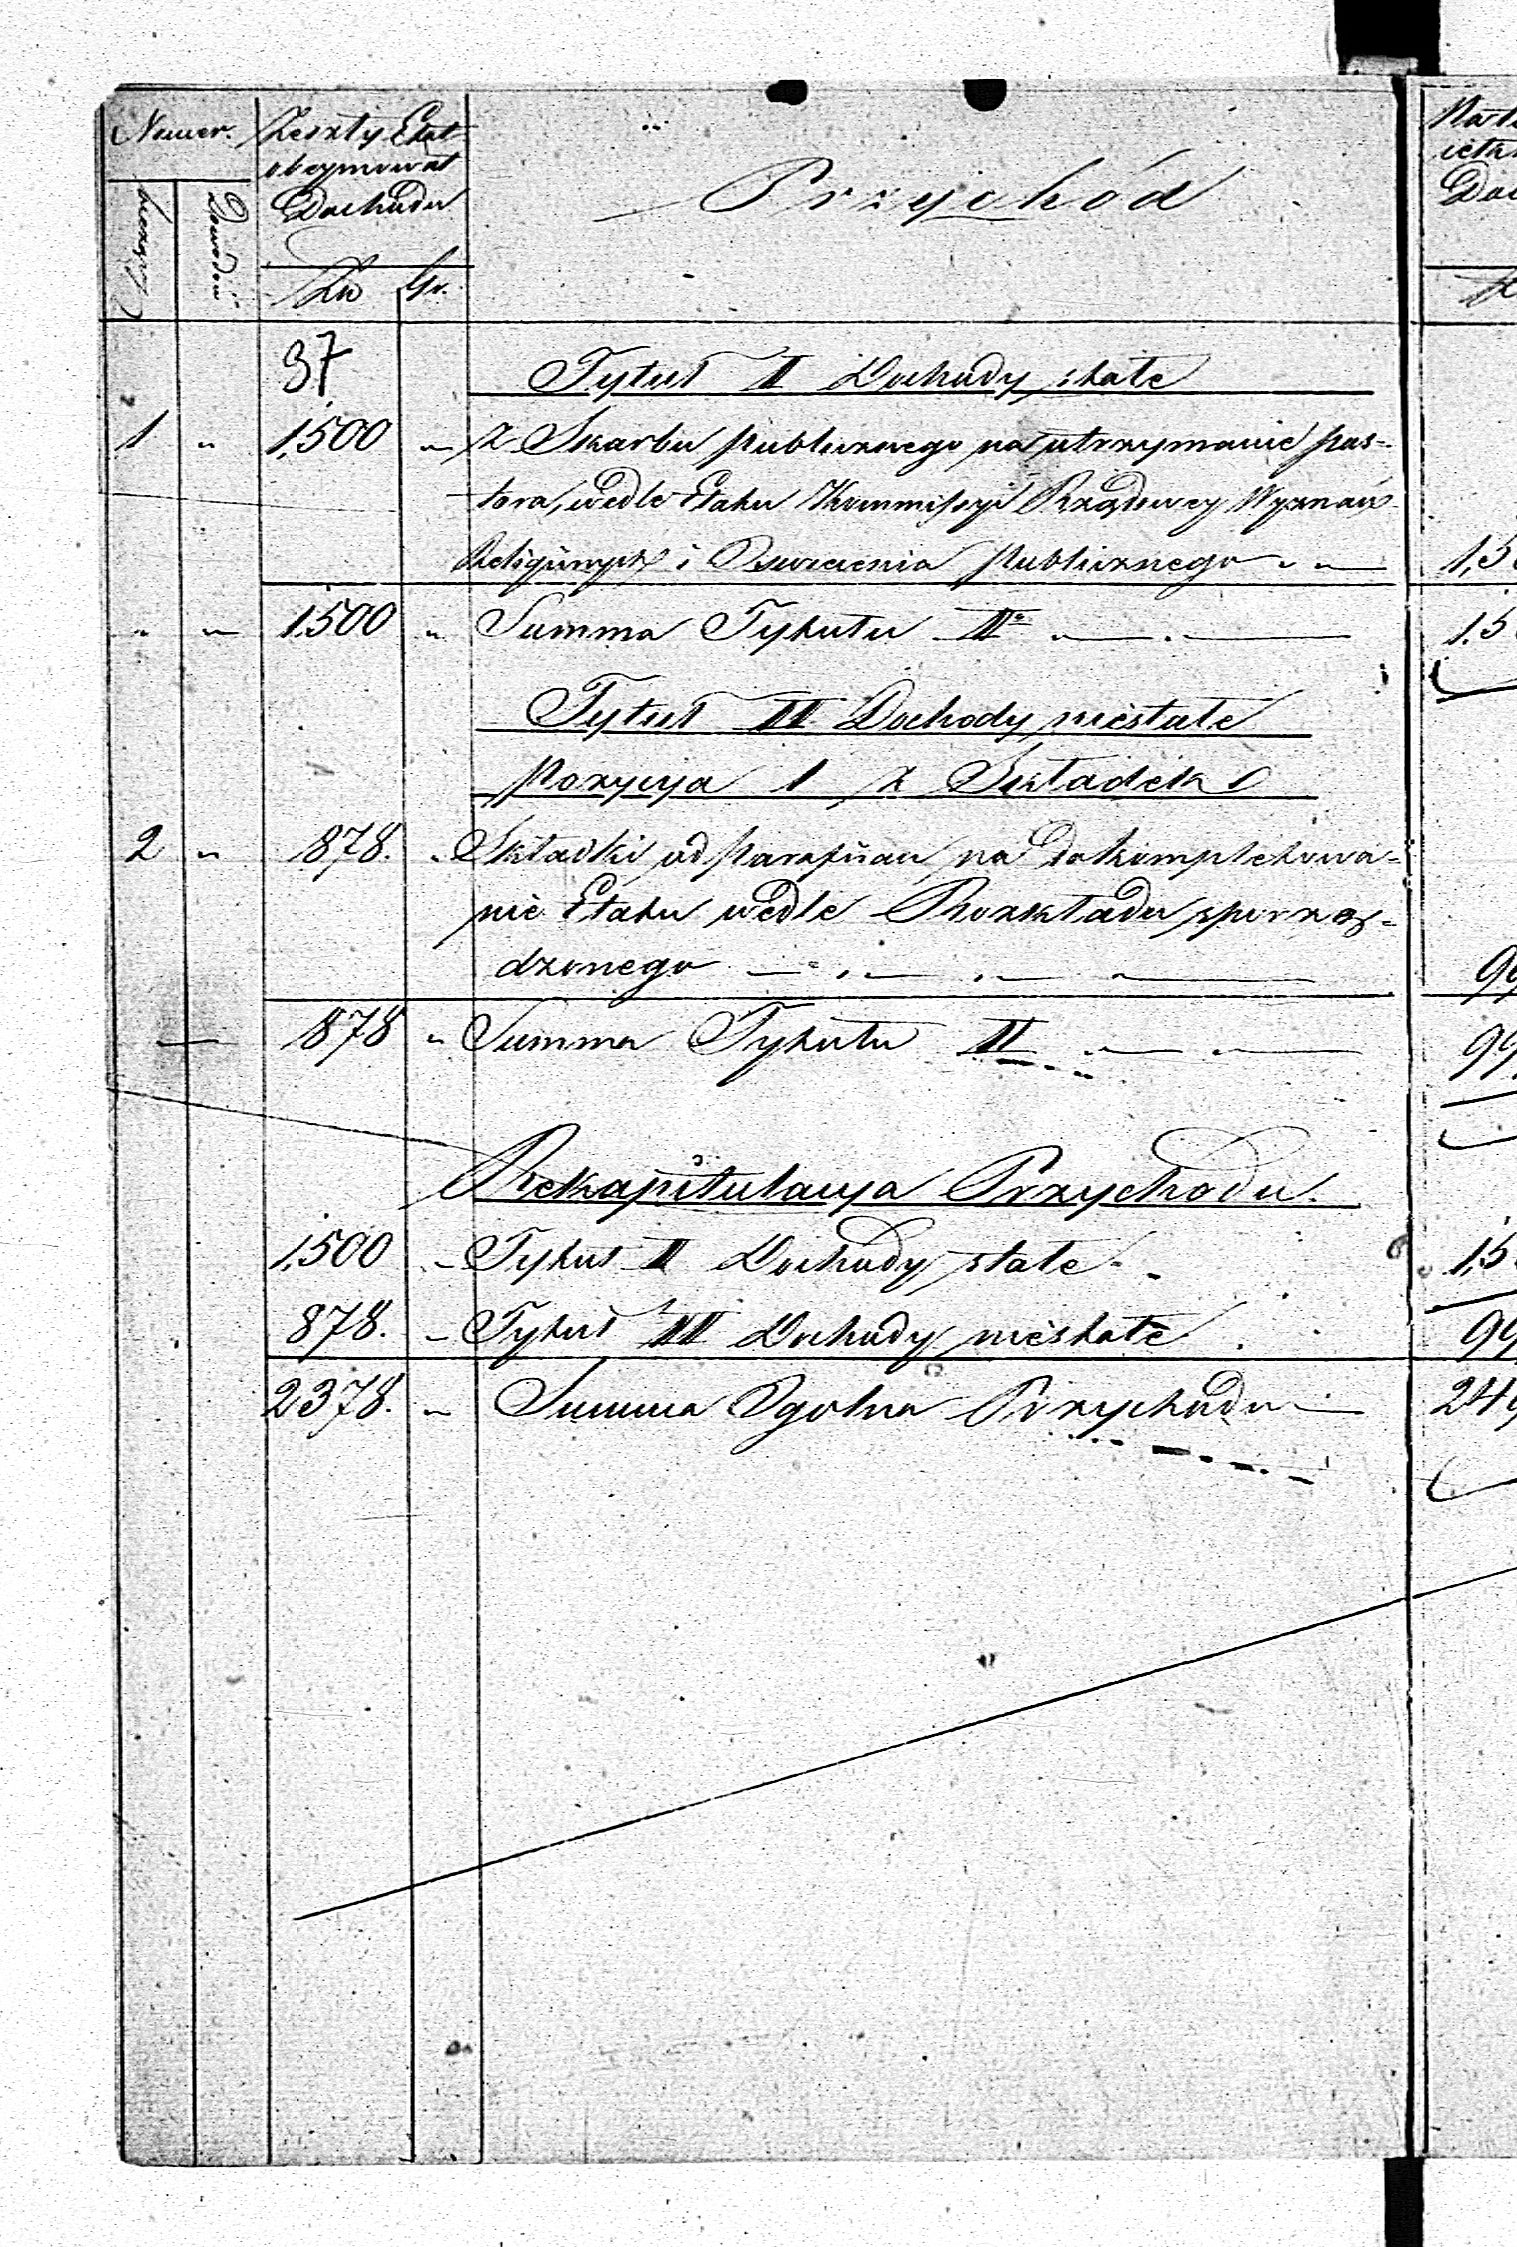 Numer. Zeszły Etat
obeymował
Dochodu
bieżący
Dowodów
Zło Gr.
Przychód
37
Tytuł II Dochody stałe
1 " 1,500 " Z Skarbu publicznego na utrzymanie pas-
tora, wedle Etatu Kommissyi Rządowey Wyznań
Religijnych i Oswiecenia publicznego " "
" " 1,500 " Summa Tytułu IIo
Tytuł III Dochody niestałe
Pozycya 1 z Składek
2 " 878. " Składki od Parafian na dokompletowa-
nie Etatu wedle Rozkładu sporzą-
dzonego
878 " Summa Tytułu II
Rekapitulacya Przychodu.
1,500 " Tytuł II Dochody stałe
878. " Tytuł III Dochody niestałe
2378. " Summa Ogolna Przychodu